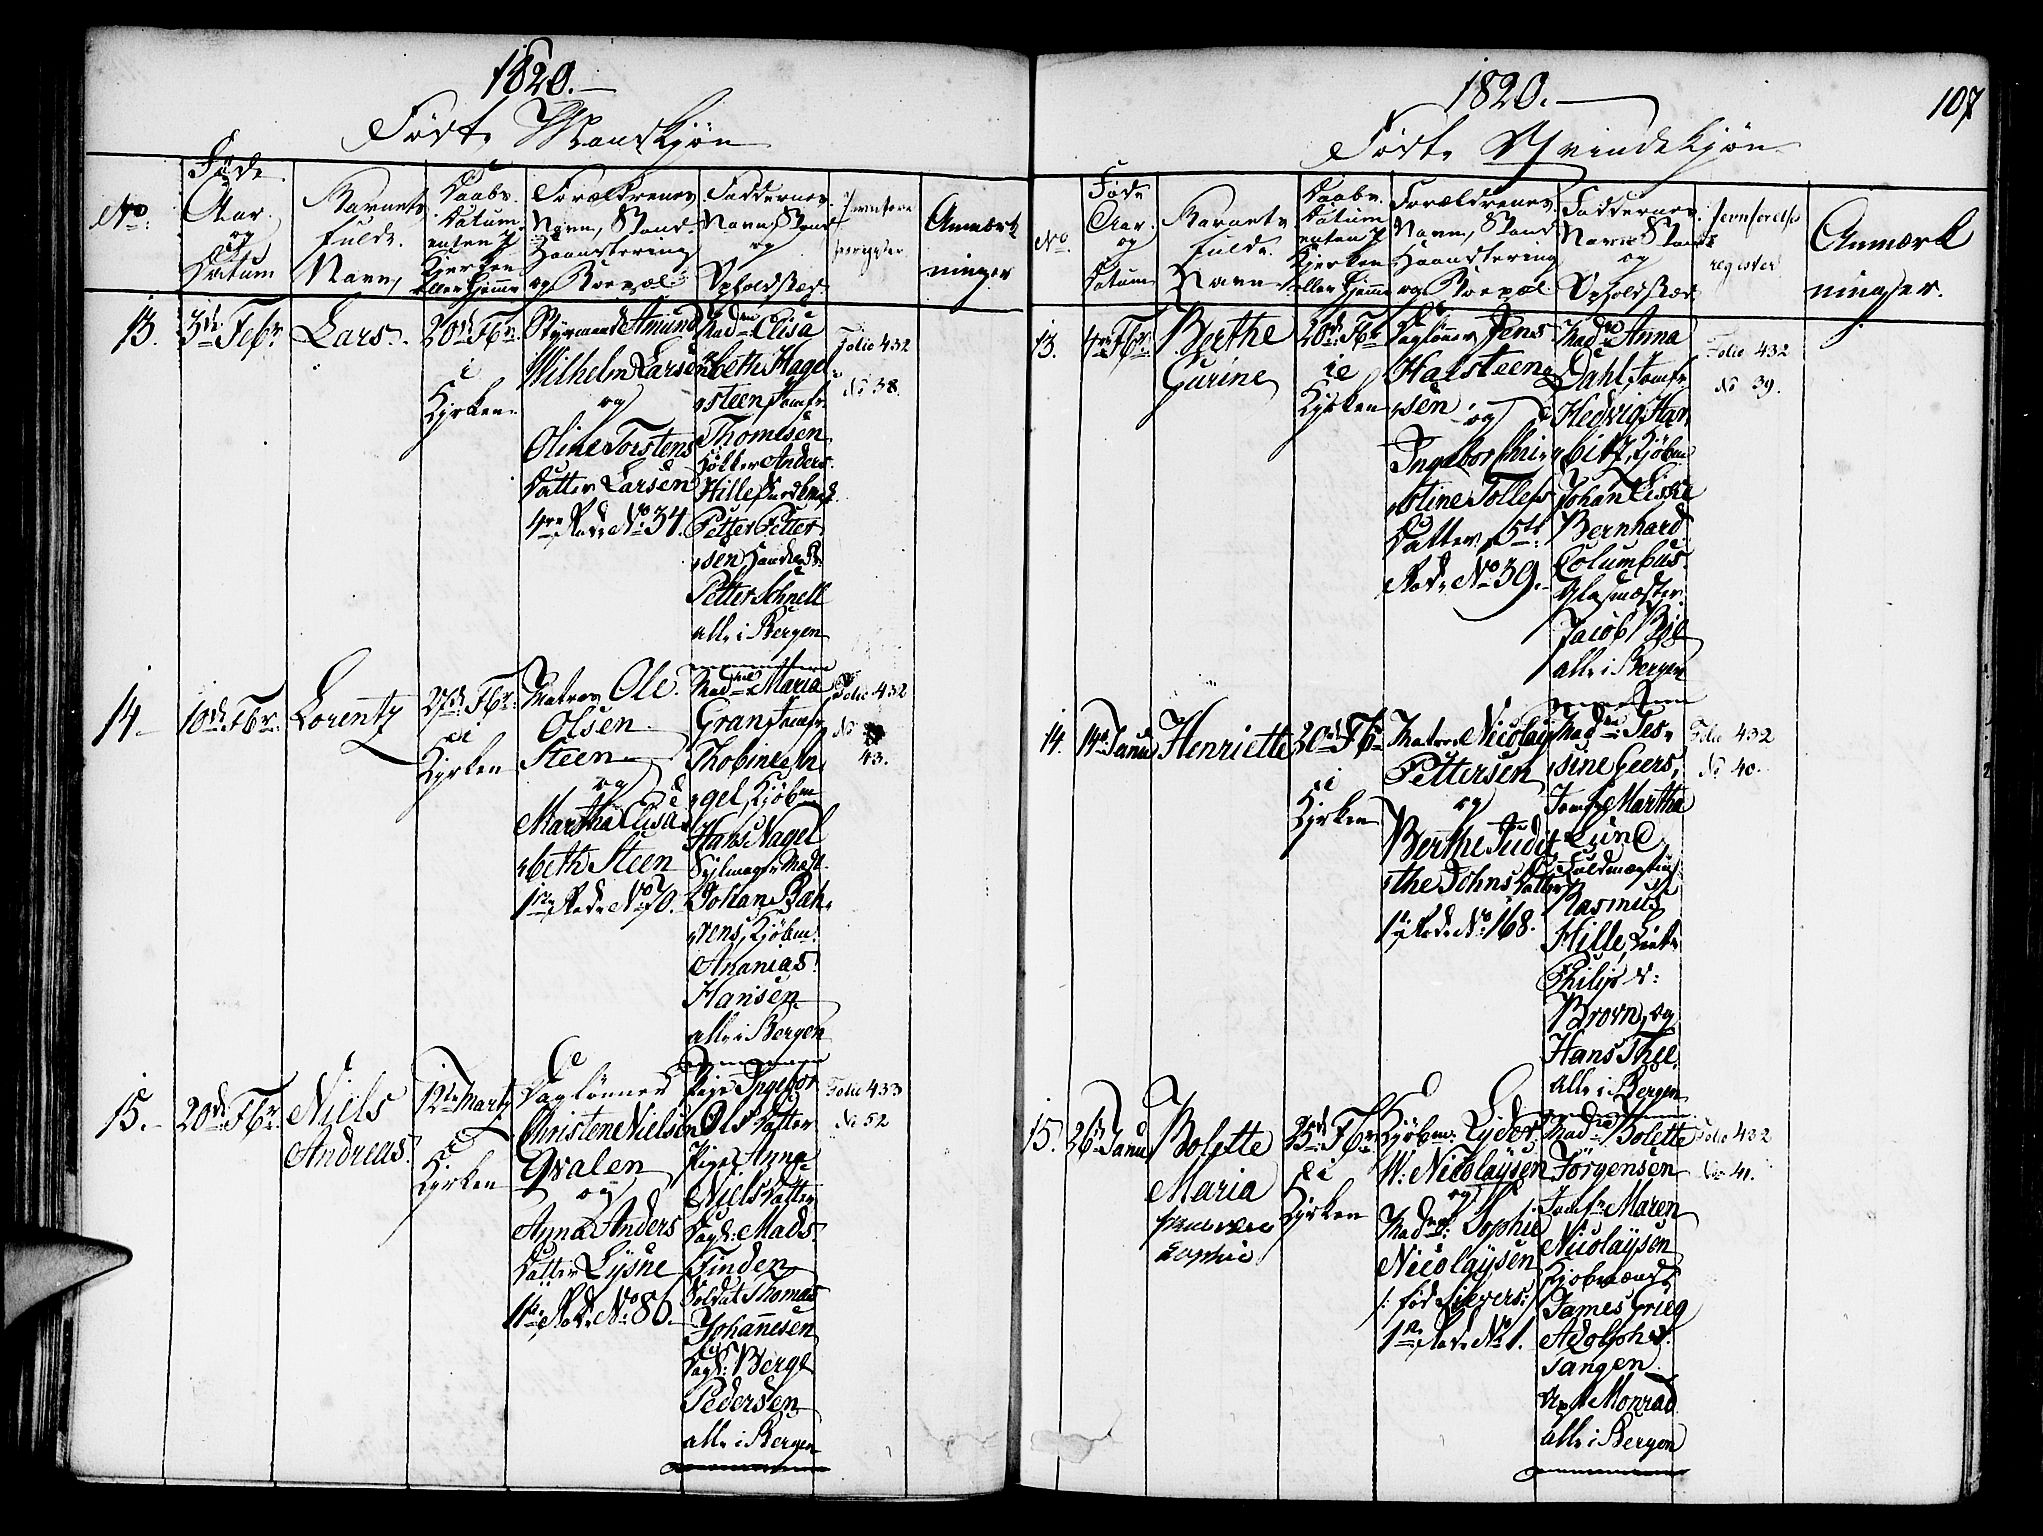 1820.
Født Mandkjøn
No.
Føde Aar. og Datum
Barnets fulde Navn,
Daabs Datum enten i Kirken eller hjemme
Forældrenes Navn, Stand Haandtering og Boepæl
Faddernes Navn, Stand og Opholdsted
Anmærkninger
13.
3de Febr.
Lars
20de Fbr. i Kirken
Styrmand Amund
Wilhelm Larsen
og
Oline Torstens
Datter Larsen
4re Rode No 34.
Madme Elisa
beth Hagel
steen, Jomfr.
Thomesen
Anders
Hille
Petter Petter
sen
Petter Schnell
alle i Bergen
Folio 432
No 38.
14.
10de Fbr.
Lorentz
27de Fbr. i Kirken
Matros Ole
Olsen
Steen
og
Martha Elisa
beth Steen
1ste Rode No 70.
Madme Maria
Gran, Jomfr
Thobine An
gel, Kjøbm
Hans Nagel
Johan Beh
rens, Kjøbm.
Ananias
Hansen
alle i Bergen
Folio 432
No
43.
15.
20de Fbr.
Niels
Andreas.
12te Martz i Kirken
Daglønner
Christen Nielsen
Qvalen
og
Anna Anders
Datter Lysne
1ste Rode No 86.
Pige Ingebor
Ols Datter
Pige Anna
Niels Datter
Dagl: Mads
Finden
Soldat Thomas
Johannesen
Dagl: Berge
Pedersen
alle i Bergen
Folio 433
No 52
1820.
107
Født Qvindekjøn
No.
Føde Aar. og Datum
Barnets fulde Navn
Daabs Datum enten i Kirken eller hjemme
Forældrenes Navn, Stand Haandtering og Boepæl
Faddernes Navn Stand og Opholdsted
Jevnførelses register
Anmærkninger.
13.
4de Fbr.
Berthe
Gurine
20de Fbr i Kirken
Daglønner Jens
Halsteen
sen og
Ingebor Chri
stine Tollefs
Datter 5te
Rode No 39.
Madme Anna
Dahl, Jomfr
Hedvig Har
bitz, Kjøbm
Johan Eiske
Bernhard
Columbus
Glasmæster
Jacob Bøe
alle i Bergen
Folio 432
No 39.
14.
14de Janu
Henriette
20de Fbr i Kirken
Matros Nicolay
Pettersen
og
Berthe Judit
the Johns Datter
1ste Rode No 168.
Madme Jes
sine Geers,
Jomfr Martha
Lund
Fuldmægtig
Rasmus
Hille
Philip v:
Brown, og
Hans Thee
alle i Bergen
Folio 432
No 40.
15.
26de Janu
Bolette
Maria
Sophie
25de Fbr i Kirken
Kjøbm: Lyder
W: Nicolaysen
og
Madme: Sophie
Nicolaysen
/: fød Sievers :/
1ste Rode No 1.
Madme Bolette
Jørgensen
Jomfr Maren
Nicolaysen
Kjøbmænd
James Grieg
Adolph v:
Tangen
Monrad
alle i Bergen
Folio 432
No 41.